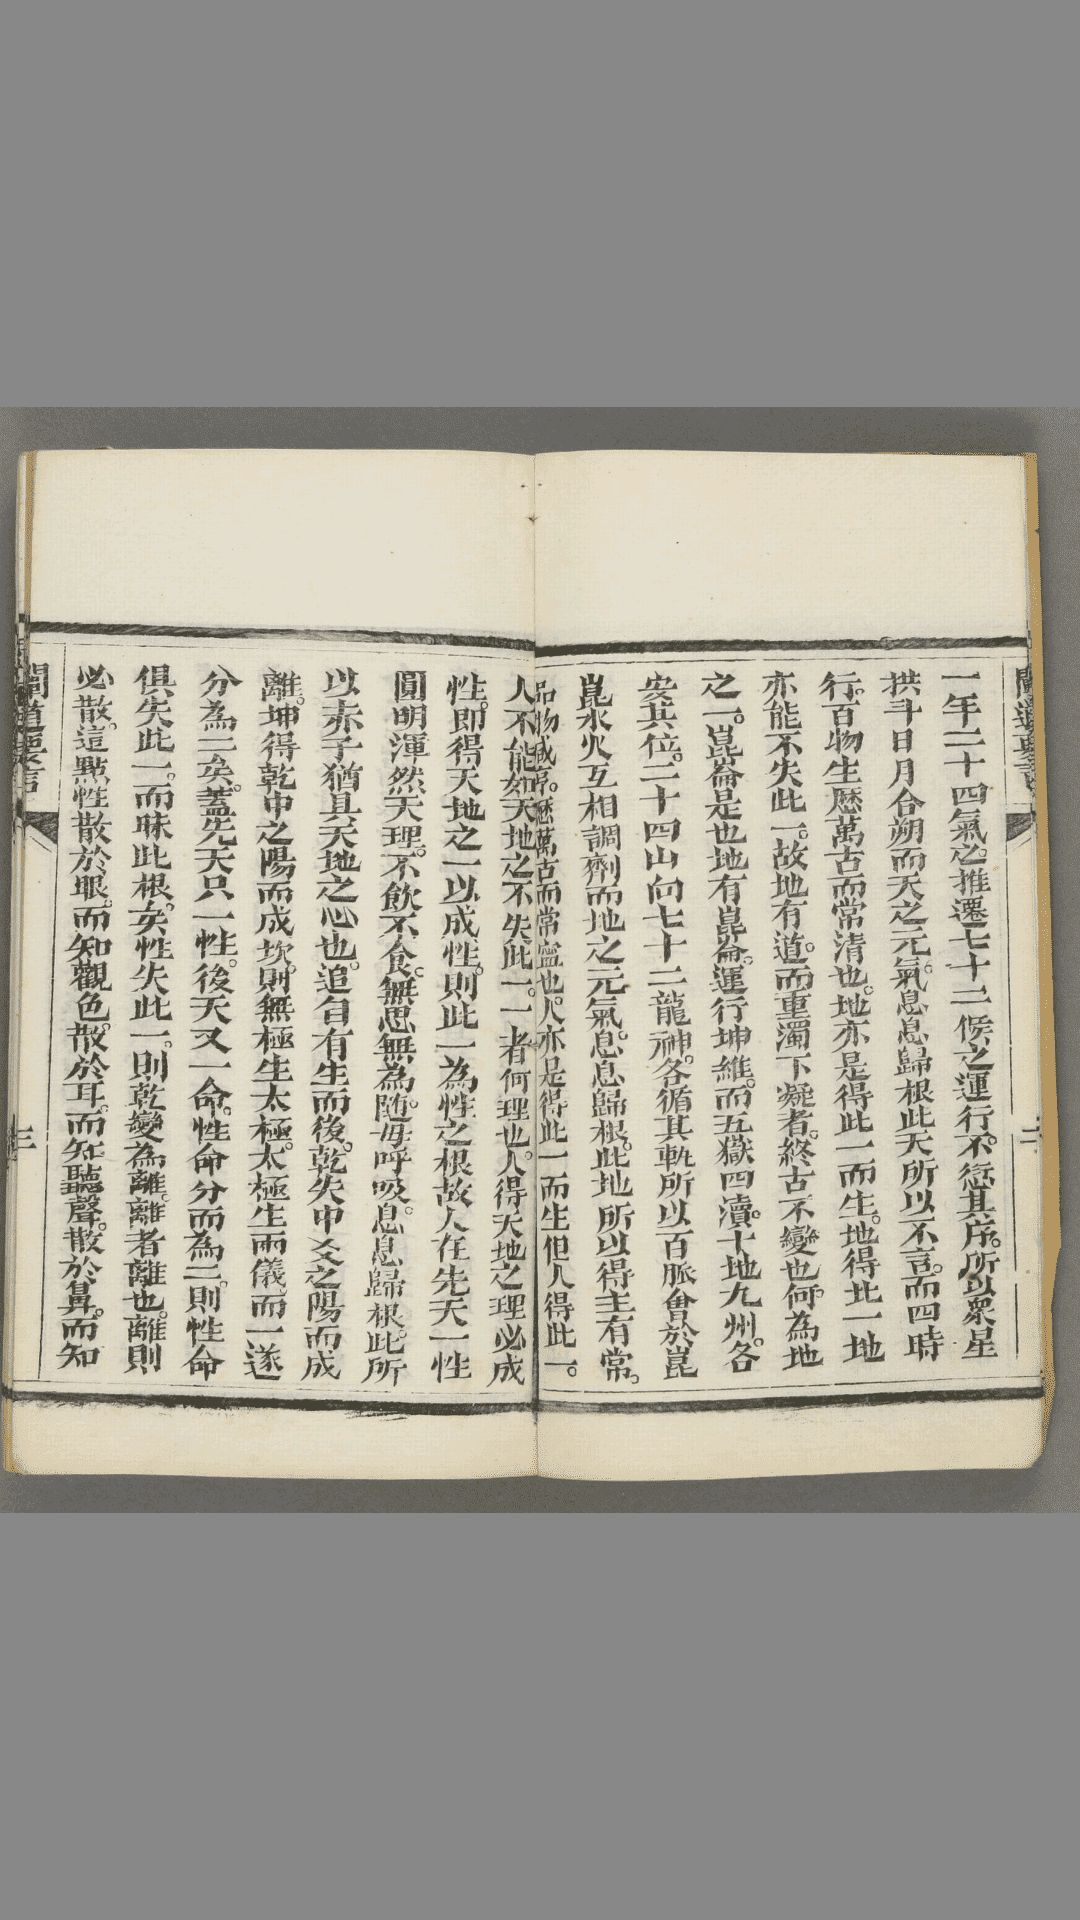 一年二十四氣之推遷七十二候之運行不愆其序。所以衆星
拱斗日月合朔而天之元氣。息息歸根此天所以不言。而四時
行。百物生。歷萬古而常清也。地亦是得此一而生。地得此一地
亦能不失此一。故地有道。而重濁下凝者。終古不變也。何為地
之一。崑崙是也地有崑崙。運行坤維。而五嶽四瀆。十地九州。各
安其位。二十四山向七十二龍神。各循其軌所以百脈會於崑
崑水火互相調劑而地之元氣。息息歸根。此地所以得主有常。
品物咸亨。歷萬古而常寧也。人亦是得此一而生但人得此一。
人不能如天地之不失此一。一者何理也。人得天地之理必成
性。即得天地之一以成性。則此一為性之根故人在先天一性
圓明渾然天理。不飲不食。無思無為。隨母呼吸。息息歸根。此所
以赤子猶具天地之心也。追自有生而後。乾失中爻之陽而成
離。坤得乾中之陽而成坎。則無極生太極。太極生兩儀。而一遂
分為二矣。蓋先天只一性。後天又一命。性命分而為二。則性命
俱失此一。而昧此根。矣性失此一。則乾變為離。離者離也。離則
必散。這點性散於眼。而知觀色。散於耳。而知聽聲。散於鼻。而知
闡道要言
三